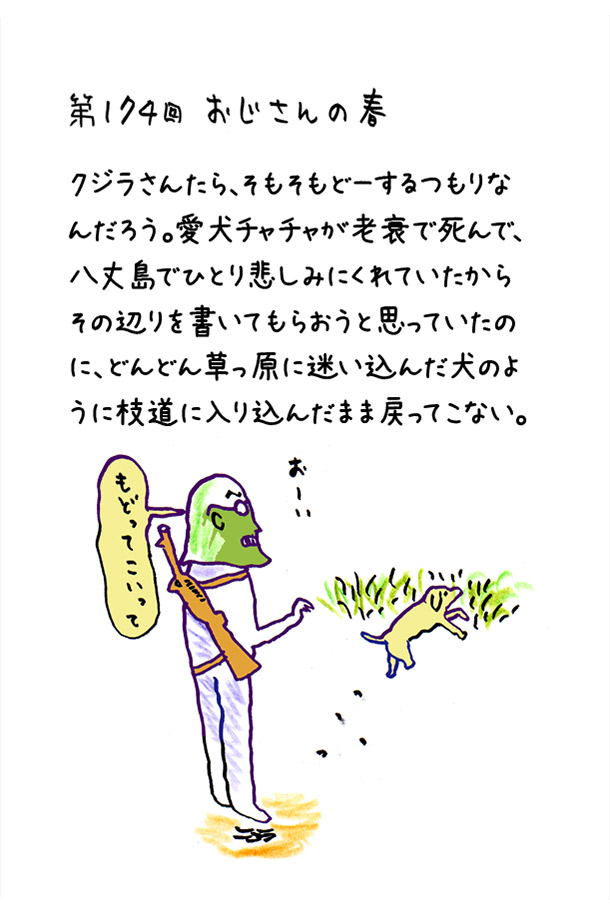 第174回 おじさんの春
クジラさんたら、そもそもどーするつもりな
んだろう。愛犬チャチャが老衰で死んで、
八丈島でひとり悲しみにくれていたから
その辺りを書いてもらおうと思っていたの
に、どんどん草っ原に迷い込んだ犬のよ
うに枝道に入り込んだまま戻ってこない。
おーい
もどってこいって